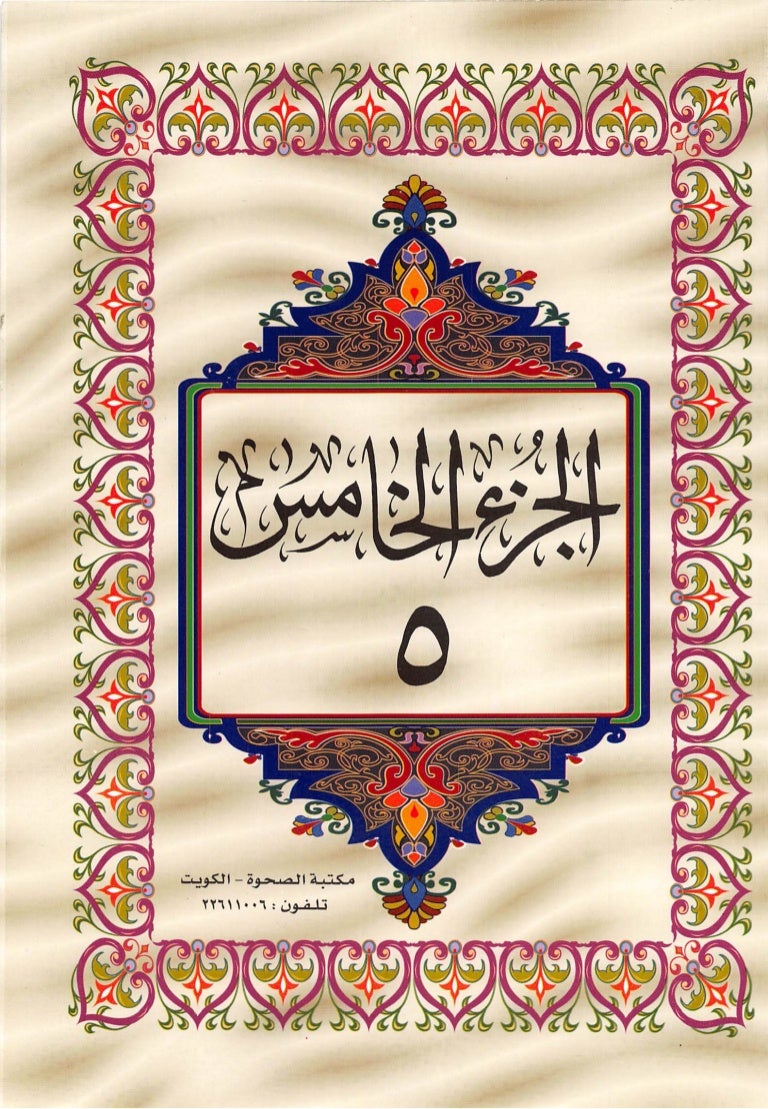 الجزء الخامس
٥
مكتبة الصحوة - الكويت
تلفون : ٢٢٦١١٠٠٦